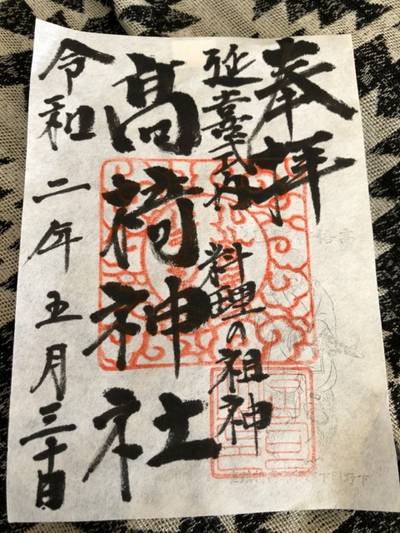 奉拝
延喜式内 料理の祖神
高椅神社
令和二年五月三十日